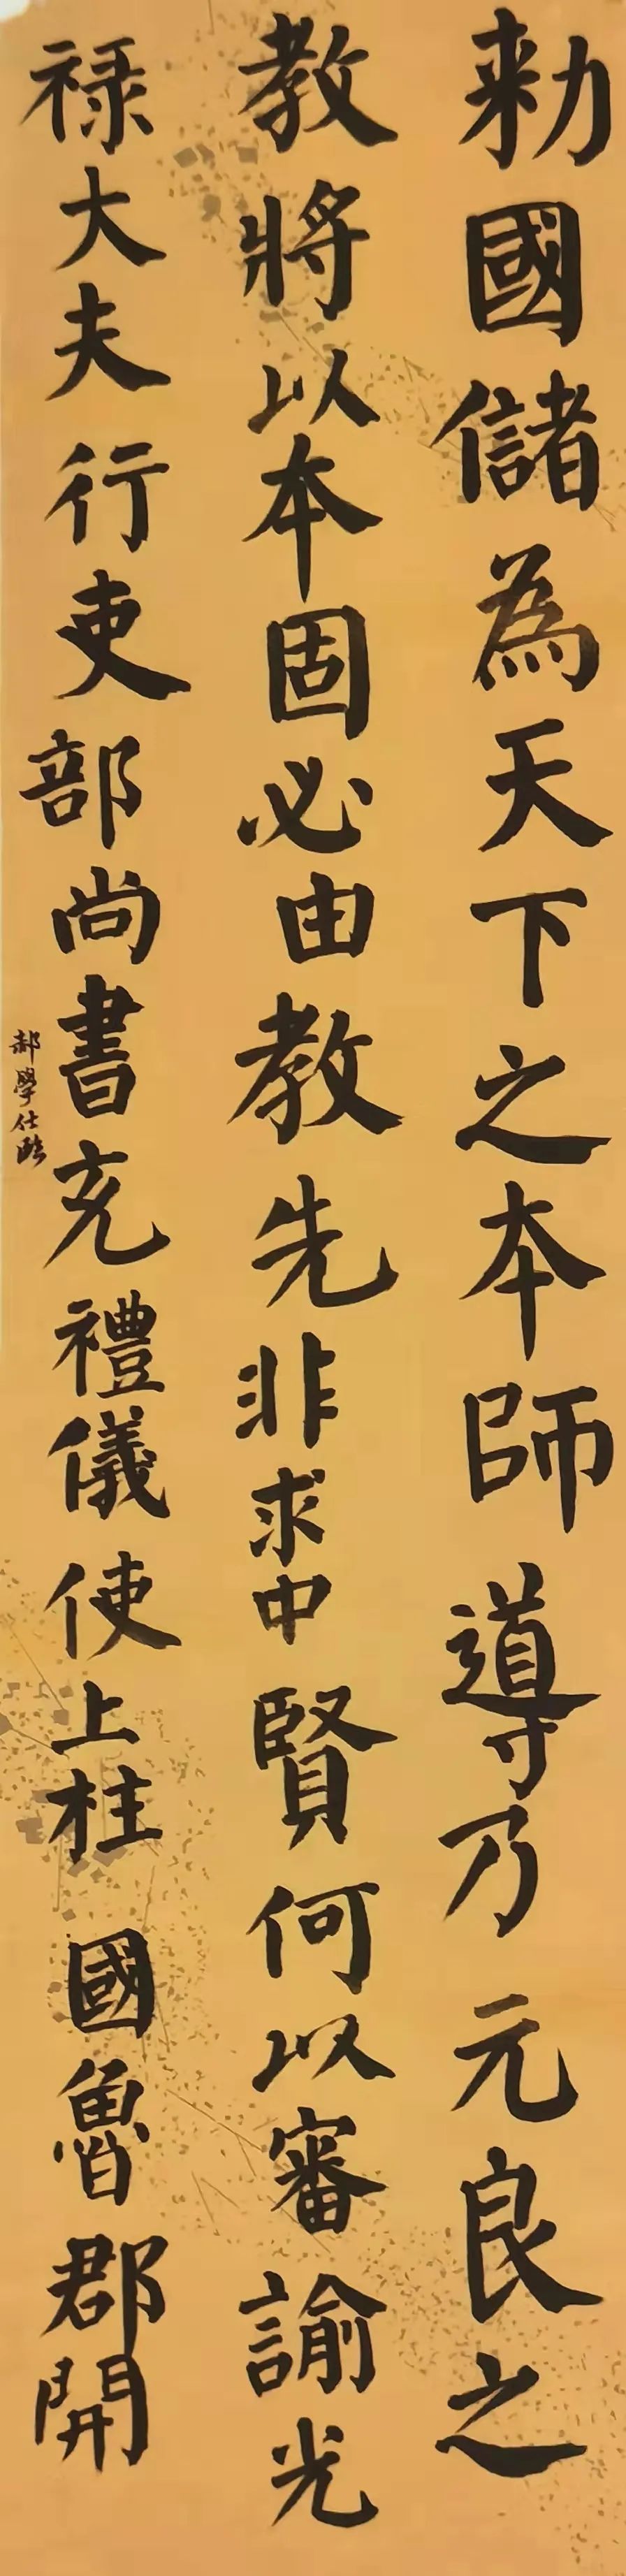 勅國儲為天下之本師導乃元良之
教將以本固必由教先非求中賢何以審諭光
禄大夫行吏部尚書充禮儀使上柱國魯郡開
郝學仕臨